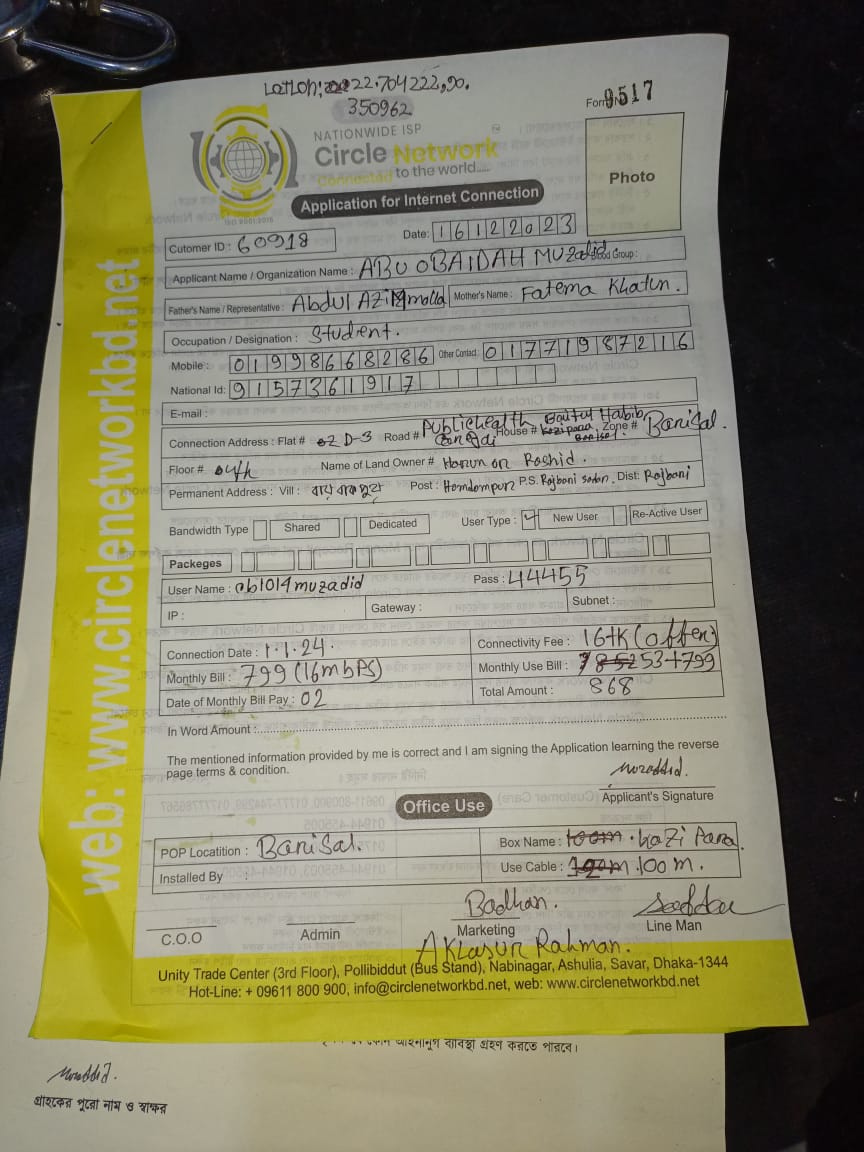 LatLon: 22.704222,90.
350962
Form 9517
NATIONWIDE ISP
Circle Network
Connected to the world.....
ISO 9001:2015
Photo
Application for Internet Connection
Date: 16122023
Cutomer ID : 60918
Applicant Name / Organization Name : ABU OBAIDAH MUzadid Blood Group :
Father's Name / Representative : Abdul AZIM molla Mother's Name : Fatema Khatun.
Occupation / Designation : Student.
Mobile : 01998668286 Other Contact: 01771987216
National Id: 9157361917
E-mail :
Connection Address : Flat # D-3 Road # Publichealth House # Baitul Habib Zone # Barisal.
Floor # 04th Name of Land Owner # Harun or Rashid.
Permanent Address : Vill : Post : Hamdampur P.S. Rajbari sadar. Dist: Rajbari
Bandwidth Type Shared Dedicated User Type : New User Re-Active User
Packeges
User Name : ab1014muzadid Pass : 44455
IP : Gateway : Subnet :
Connection Date : 1.1.24. Connectivity Fee : 16tk (offer)
Monthly Bill : 799 (16mbps) Monthly Use Bill : 53+799
Date of Monthly Bill Pay : 02 Total Amount : 868
In Word Amount :
The mentioned information provided by me is correct and I am signing the Application learning the reverse
page terms & condition.
Muzaddid.
Applicant's Signature
Office Use
POP Locatition : Barisal. Box Name : Kazi Para.
Installed By : Use Cable : 100m.
Badhan.
C.O.O Admin Marketing Line Man
Aklasur Rahman.
Unity Trade Center (3rd Floor), Pollibiddut (Bus Stand), Nabinagar, Ashulia, Savar, Dhaka-1344
Hot-Line: + 09611 800 900, info@circlenetworkbd.net, web: www.circlenetworkbd.net
web: www.circlenetworkbd.net
গ্রহণ করতে পারবে।
Muzaddid.
গ্রাহকের পুরো নাম ও স্বাক্ষর